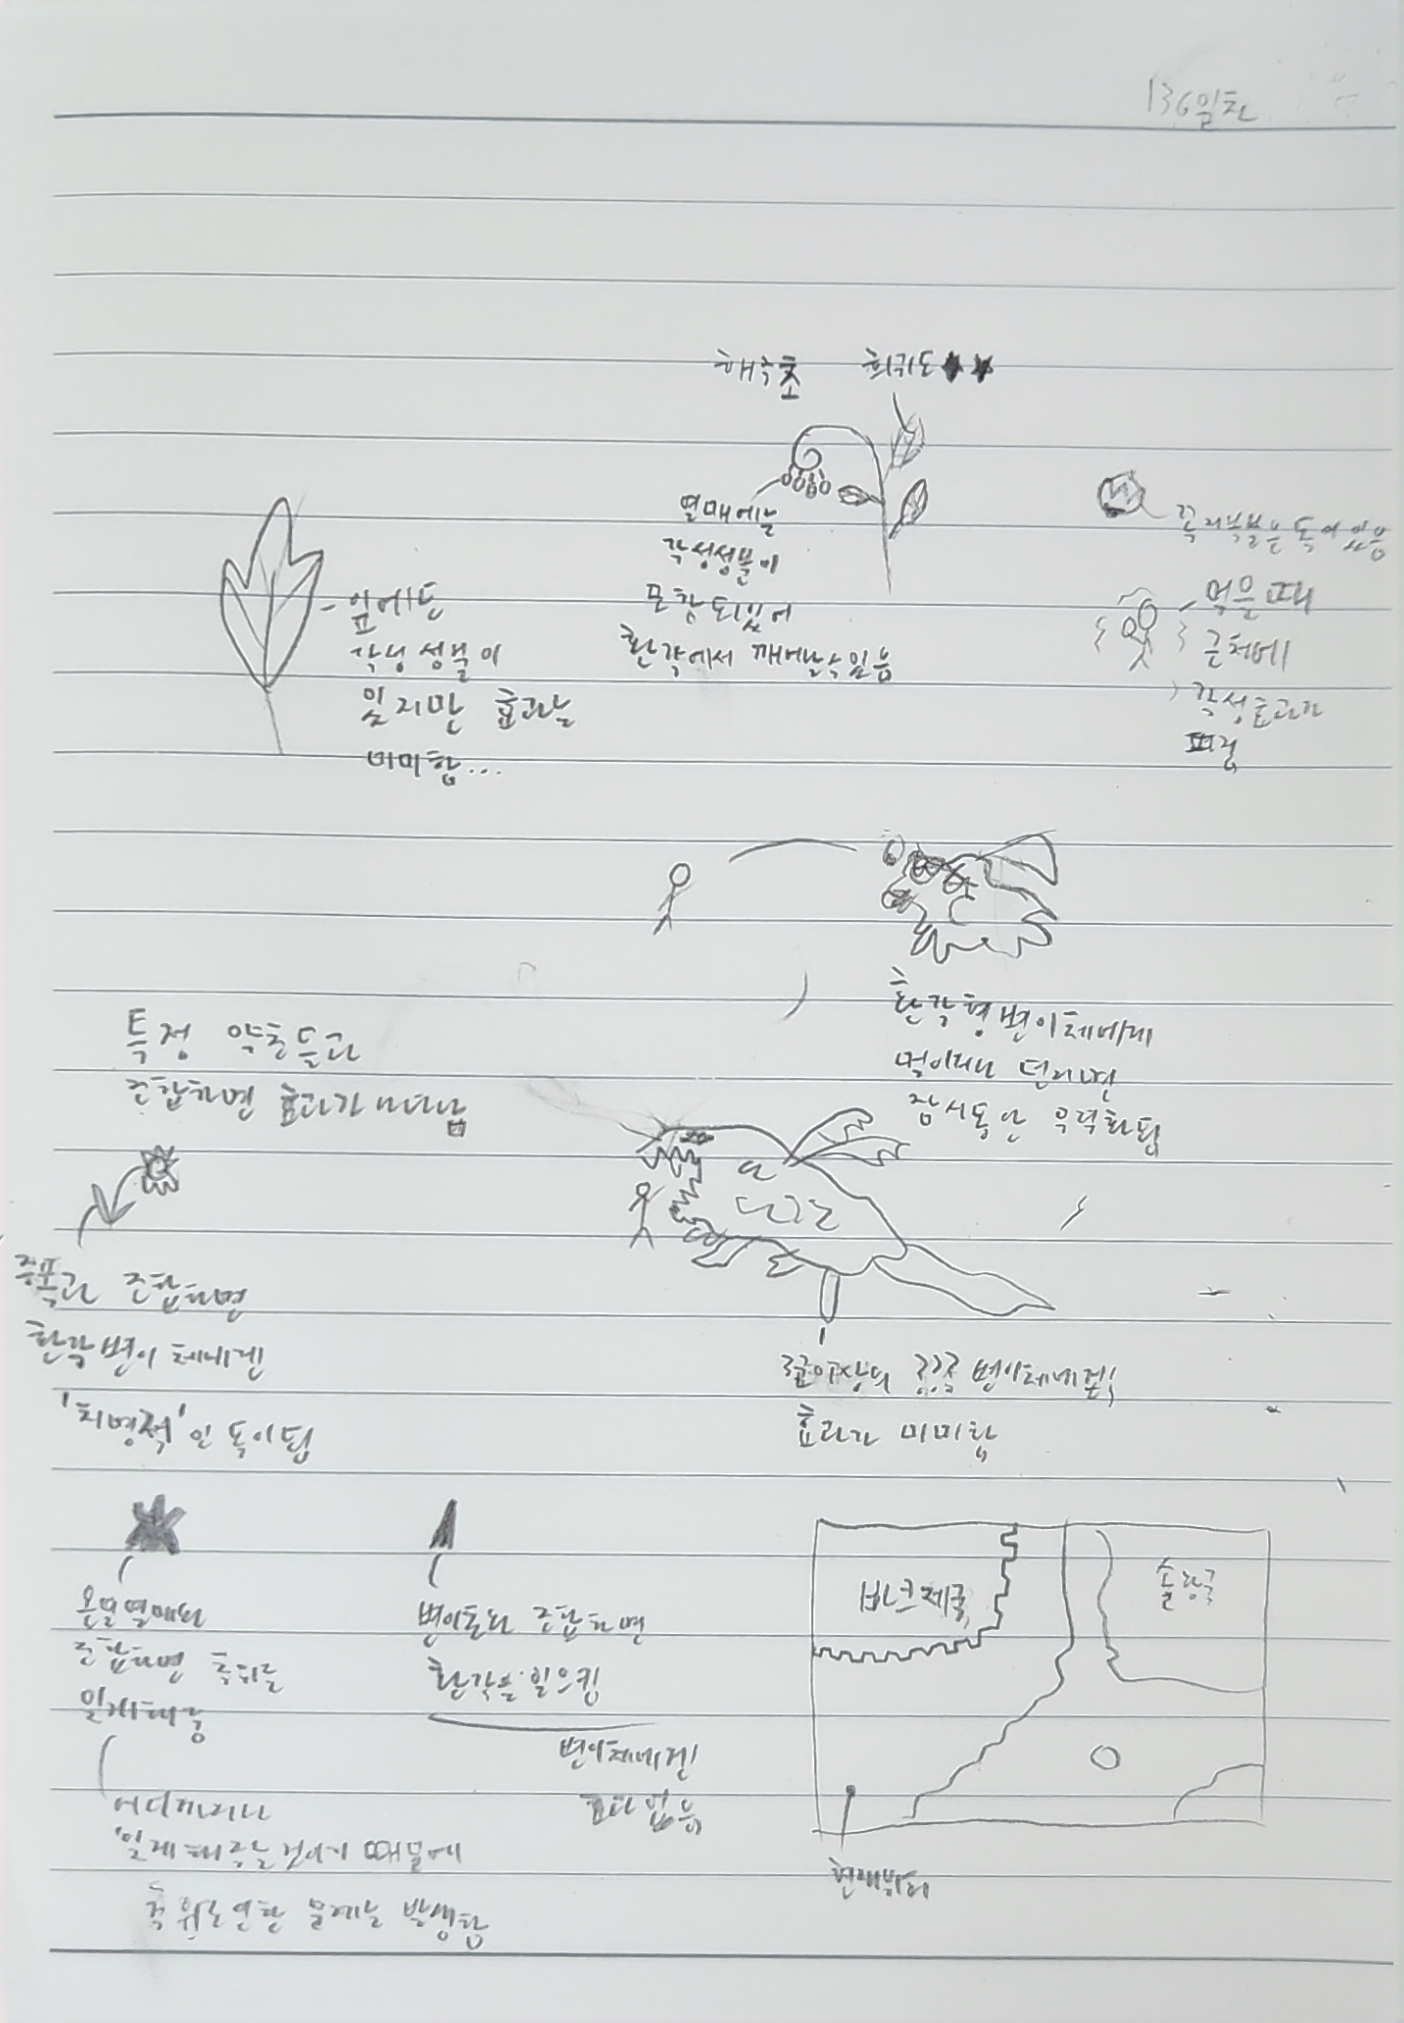 136일차
해주초 희귀도★★
열매에는
각성성분이
포함되있어
환각에서 깨어날수있음
꼭지부분은 독이있음
먹을때
근처에
각성효과가
퍼짐
잎에도
각성성분이
있지만 효과는
미미함...
환각형변이체에게
멀이서나 던지면
잠시동안 무력화됨
특정 약초들과
조합하면 효과가 나타남
조합하면
환각변이체에겐
'치명적'인 독이됨
3급이상의 변이체에겐
효과가 미미함
온열열매와
조합하면 추위를
잊게해줌
어디까지나
잊게해주는것이기 때문에
추위로인한 문제는 발생함
변이초와 조합하면
환각을 일으킴
변이체에겐
효과없음
바크제국
솔랑국
현재위치